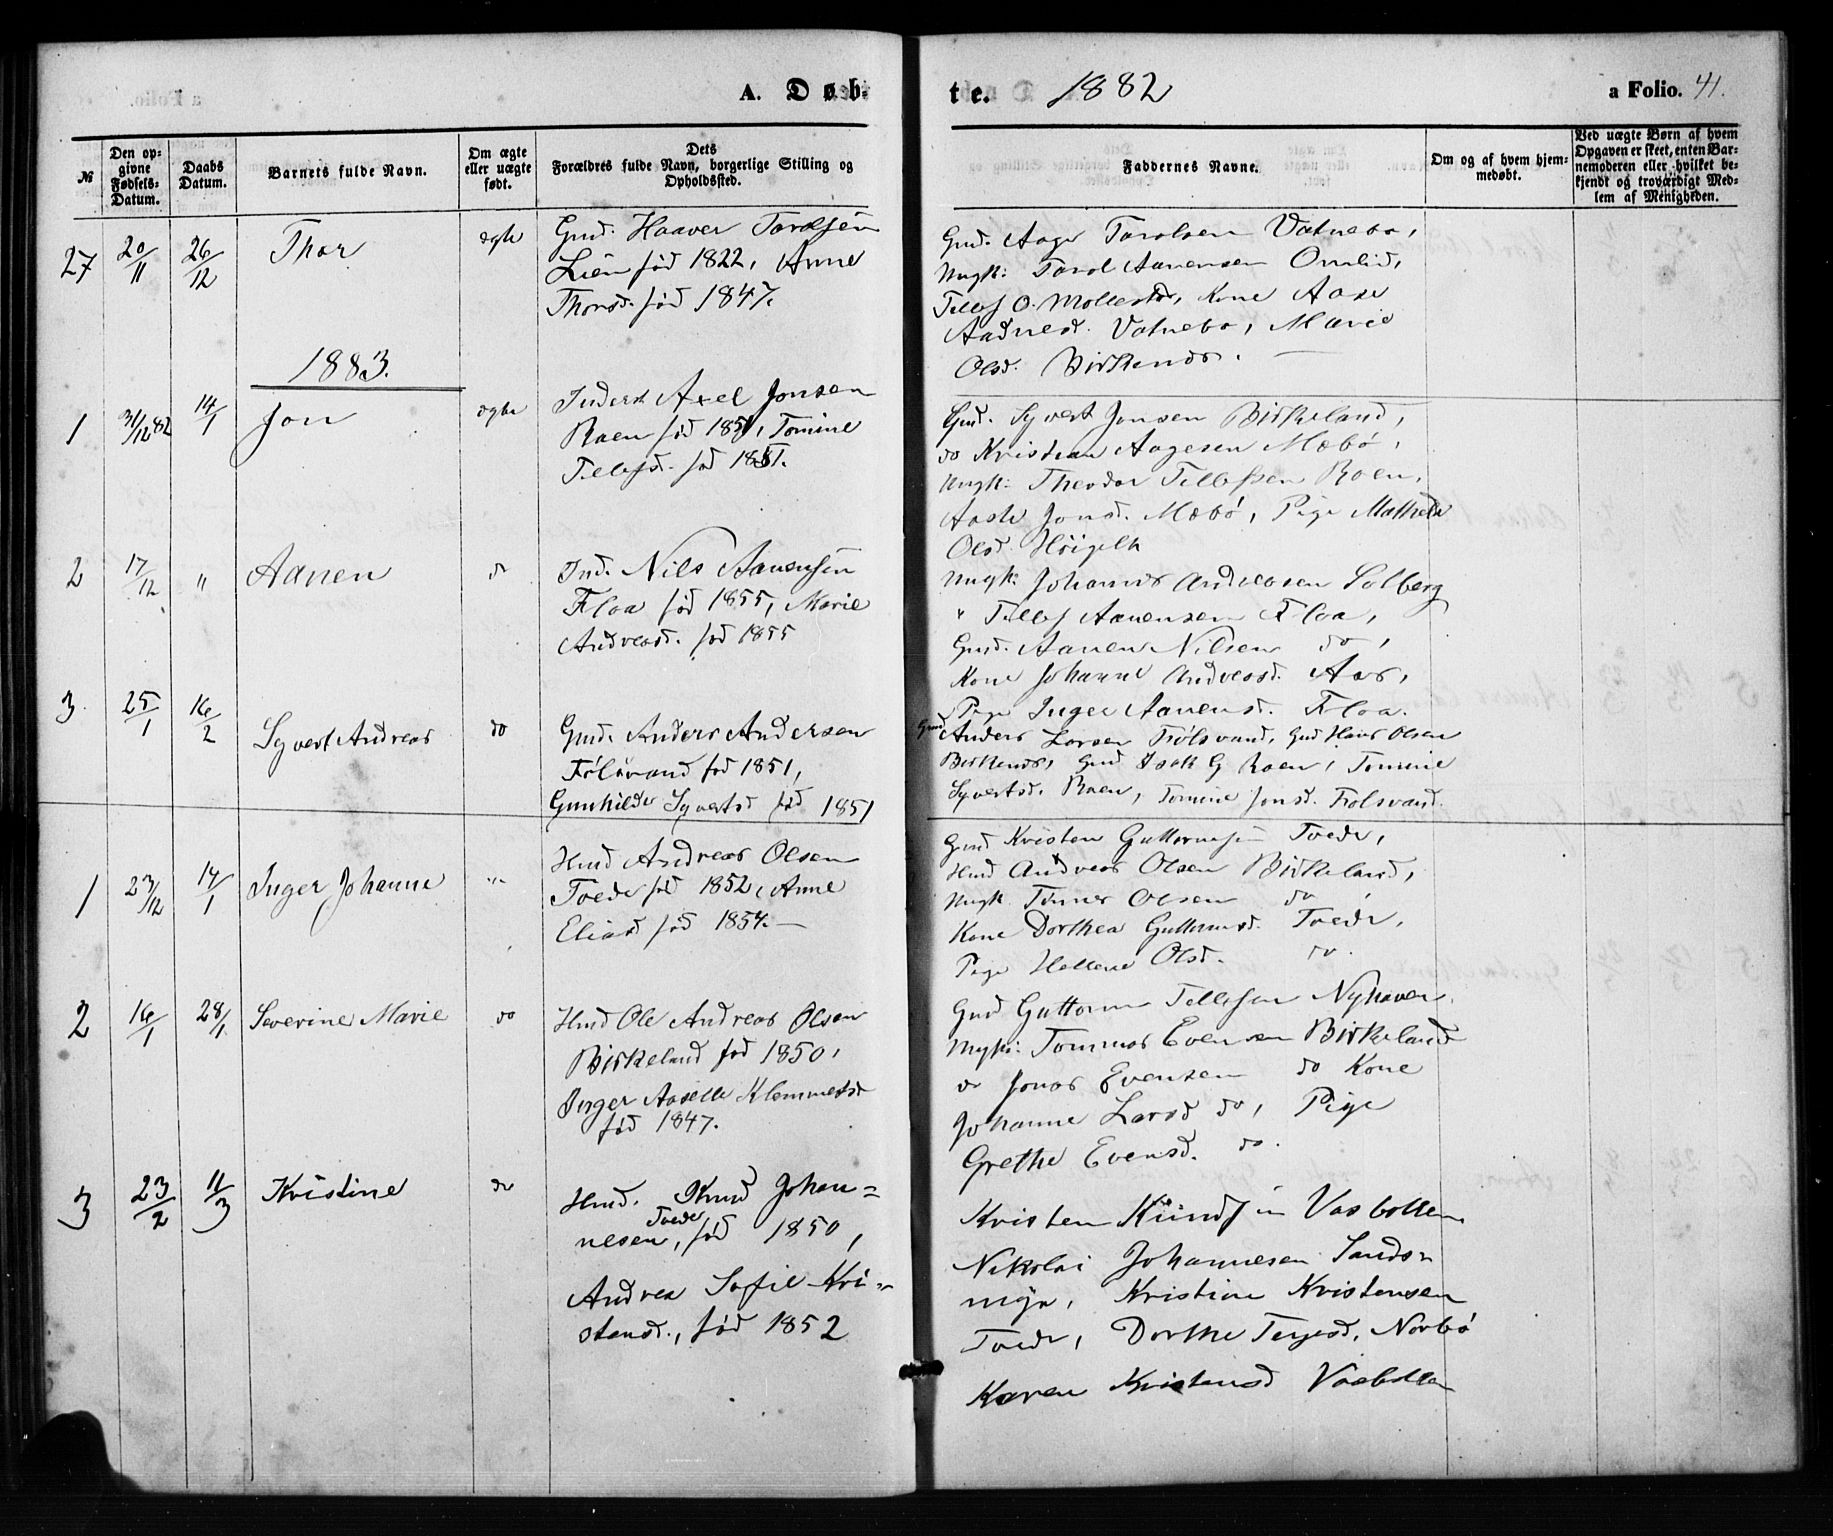 A. Døb-
te. 1882
a Folio. 41.
№
Den opgivne Fødsels-Datum.
Daabs Datum.
Barnets fulde Navn.
Om ægte eller uægte født.
Dets Forældres fulde Navn, borgerlige Stilling og Opholdssted.
Faddernes Navne.
Om og af hvem hjemmedøbt.
Ved uægte Børn af hvem Opgaven er skeet, enten Barnemoderen eller hvilket bekjendt og troværdigt Medlem af Menigheden.
27 20/11 26/12 Thor ægte
Gmd. Haaver Taralsen
Lien fød 1822, Anne
Thorsd. fød 1847.
Gmd. Aage Taralsen Vatnebo,
Ungk: Taral Aanensen Omlid,
Tellef O. Mollestad, Kone Aase
Aadnesd. Vatnebo, Marie
Olsd. Birkenæs.
1883.
1 31/12 82 14/1 Jon ægte
Inderst Axel Jonsen
Raen fød 1851, Tomine
Tellefsd. fød 1851.
Gmd. Syvert Jonsen Birkeland,
do Kristian Aagesen Mæbø,
Ungk: Theodor Tellefsen Raen,
Aaste Jonsd. Mæbø, Pige Mathilde
Olsd.
2 17/12 " Aanen do
Ind. Nils Aanensen
Floa fød 1855, Marie
Andreasd. fød 1855
Ungk: Johannes Andreasen Solberg
" Tellef Aanensen Floa,
Gmd. Aanen Nilsen do,
Kone Johanne Andreasd. Aas,
Pige Inger Aanensd. Floa.
3 25/1 16/2 Syvert Andreas do
Gmd. Anders Andersen
Følsvand fød 1851,
Gunhilde Syvertsd fød 1851
Gmd Anders Larsen Følsvand, Gmd Hans Olsen
Birkenæs, Gmd Isak G Raen, Tomine
Syvertsd. Raen, Tomine Jonsd. Følsvand.
1 23/12 14/1 Inger Johanne "
Hmd Andreas Olsen
Tvede fød 1852, Anne
Eliasd fød 1854.
Gmd Kristen Guttormsen Tvede,
Hmd Andreas Olsen Birkeland,
Ungk. Tønnes Olsen do
Kone Dorthea Guttormsd. Tvede,
Pige Hellene Olsd. do.
2 16/1 28/1 Severine Marie do
Hmd Ole Andreas Olsen
Birkeland fød 1850,
Inger Aaselle Klemmetsd
fød 1847.
Gmd Guttorm Tellefsen Nyhaven,
Ungk: Tommas Evensen Birkeland
do Jonas Evensen do Kone
Johanne Larsd do, Pige
Grethe Evensd. do.
3 23/2 11/3 Kristine do
Hmd. Knud Johan=
nesen, Tvede fød 1850,
Andrea Sofie Kri=
stensd., fød 1852
Kristen Knudsen Vasbotten
Nikolai Johannesen Sands=
myr, Kristine Kristensen
Tvede, Dorthe Terjesd. Norbø
Karen Kristensd Vasbotten